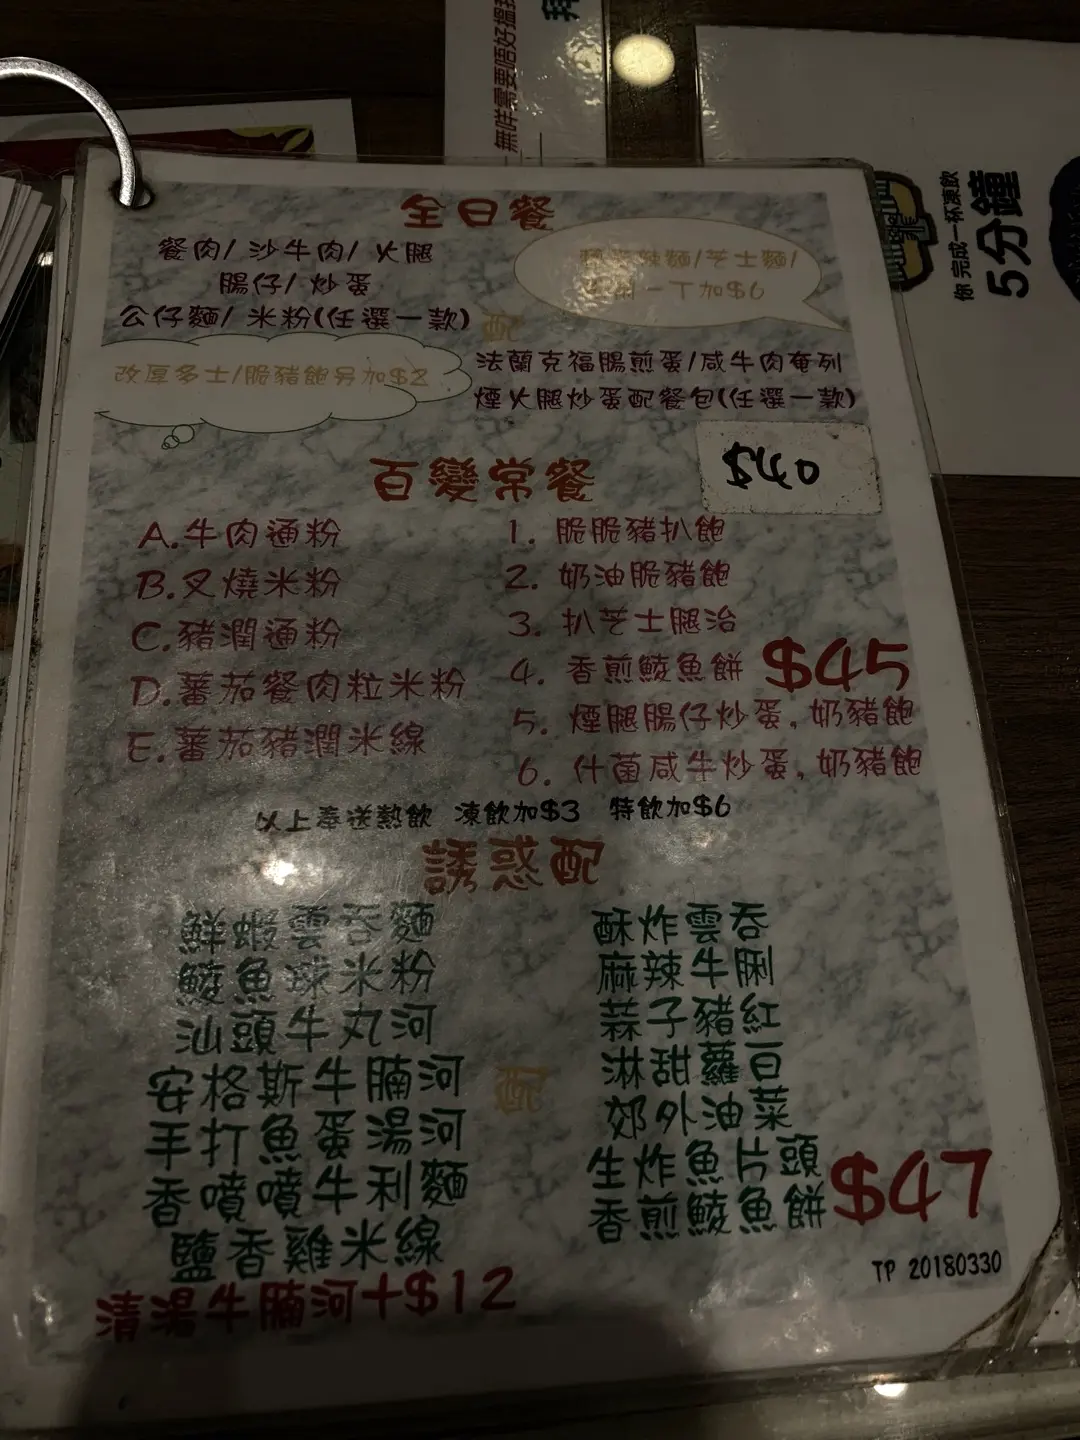 無咩需要唔好搵我
你完成一杯凍飲
5分鐘
全日餐
餐肉/ 沙牛肉/ 火腿
腸仔/ 炒蛋
公仔麵/ 米粉(任選一款)
辣麵/芝士麵/
一丁加$6
配
改厚多士/脆豬飽另加$2
法蘭克福腸煎蛋/咸牛肉奄列
煙火腿炒蛋配餐包(任選一款)
$40
百變常餐
A.牛肉通粉
B.叉燒米粉
C.豬潤通粉
D.蕃茄餐肉粒米粉
E.蕃茄豬潤米線
1. 脆脆豬扒飽
2. 奶油脆豬飽
3. 扒芝士腿治
4. 香煎鯪魚餅
5. 煙腿腸仔炒蛋, 奶豬飽
6. 什菌咸牛炒蛋, 奶豬飽
$45
以上奉送熱飲 凍飲加$3 特飲加$6
誘惑配
鮮蝦雲吞麵
鯪魚球米粉
汕頭牛丸河
安格斯牛腩河
手打魚蛋湯河
香噴噴牛利麵
鹽香雞米線
清湯牛腩河+$12
配
酥炸雲吞
麻辣牛脷
蒜子豬紅
淋甜蘿白
郊外油菜
生炸魚片頭
香煎鯪魚餅
$47
TP 20180330